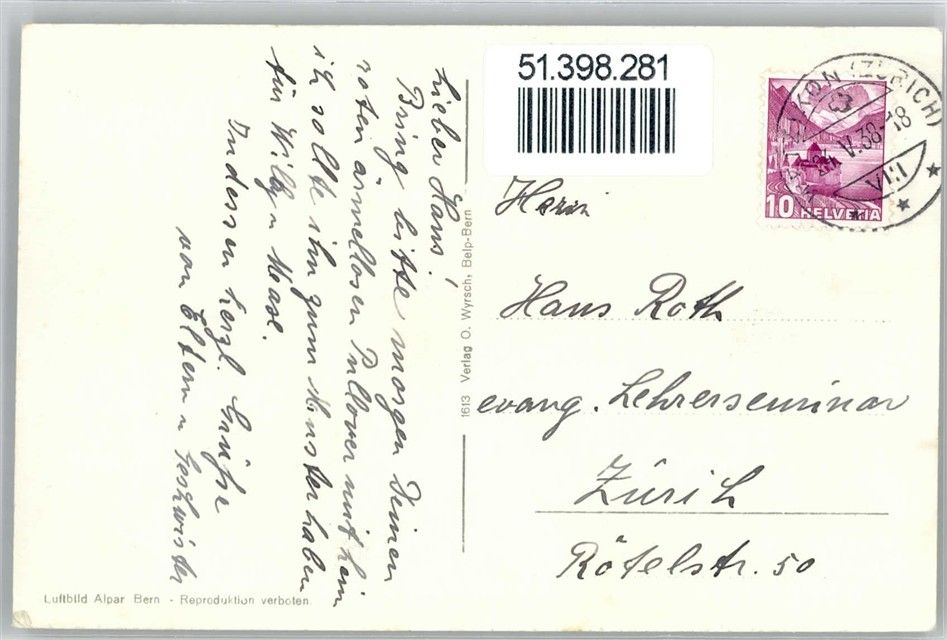 51.398.281
Lieber Hans!
Bring bitte morgen Deinen
roten ärmellosen Pullover mit heim
ich sollte ihn zum Muster haben
für Willy's Masl.
Indessen herzl. Grüsse
von Eltern u Geschwister
1613 Verlag O. Wyrsch, Belp-Bern
Herrn
Hans Roth
evang. Lehrerseminar
Zürich
Rötelstr. 50
10 HELVETIA
(ZÜRICH)
V.38-18
Luftbild Alpar Bern - Reproduktion verboten